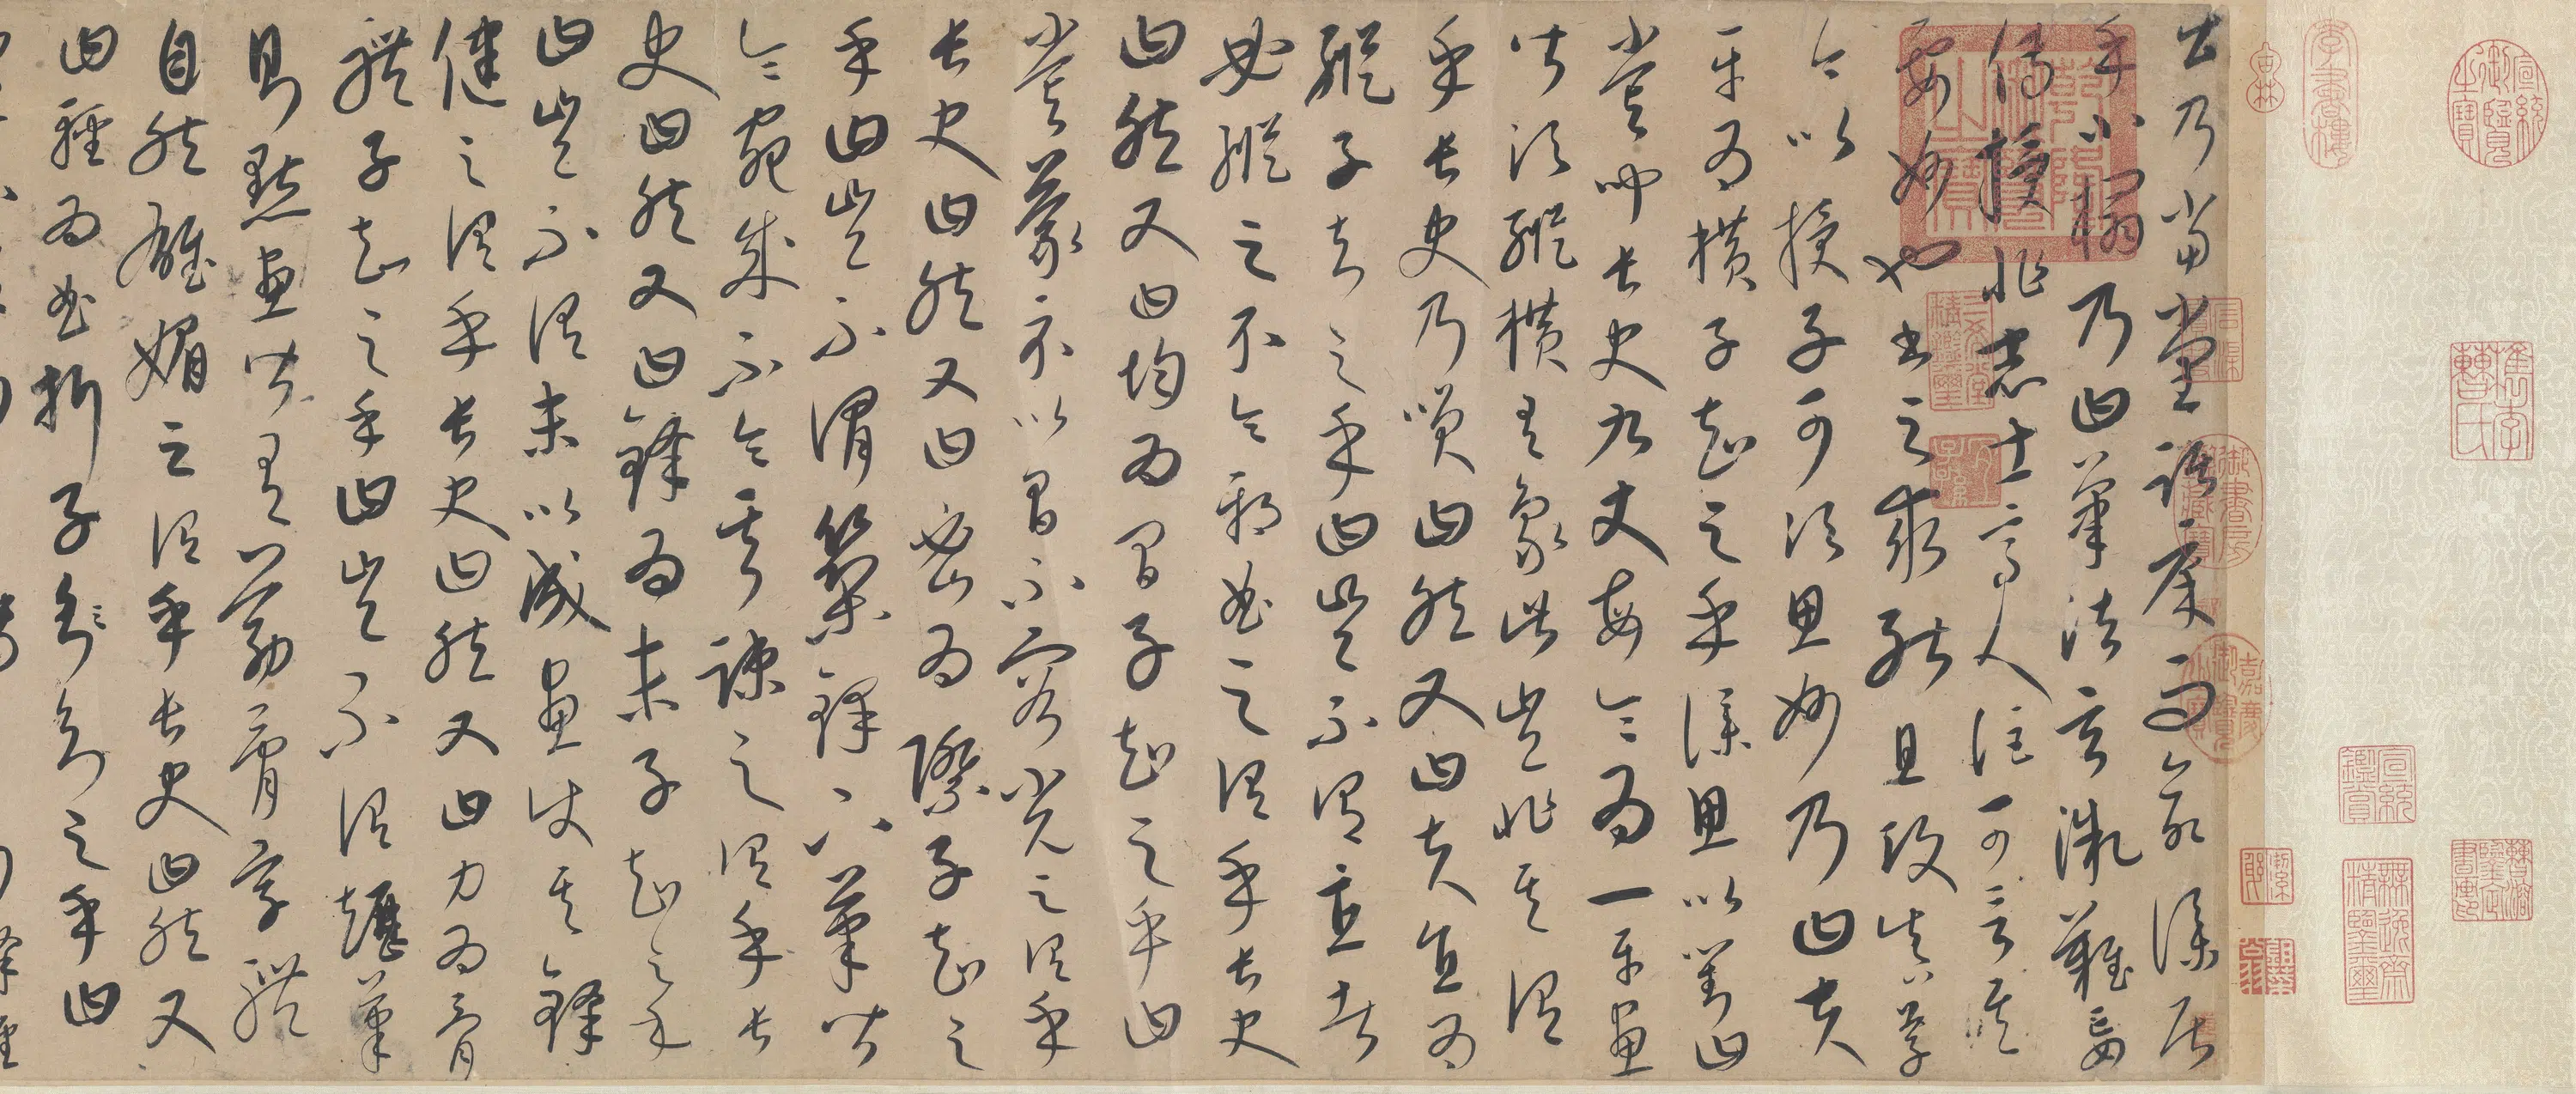 出乃當堂踞床而命僕居
乎小榻乃曰筆法玄微難妄
傳授非志士高人詎可言其
要妙也書之求能且攻真草
今以授子可須思妙乃曰夫
平為橫子知之乎僕思以對曰
嘗聞長史九丈每令為一平畫
皆須縱橫有象此豈非其謂
乎長史乃笑曰然又曰夫直為
縱子知之乎曰豈不謂直者
必縱之不令邪曲之謂乎長史
曰然又曰均為間子知之乎曰
嘗蒙示以間不容光之謂乎
長史曰然又曰密為際子知之
乎曰豈不謂築鋒下筆皆
令宛成不令其疎之謂乎長
史曰然又曰鋒為末子知之乎
曰豈不謂末以成畫使其鋒
健之謂乎長史曰然又曰力為骨
體子知之乎曰豈不謂趯筆
則點畫皆有筋骨字體
自然雄媚之謂乎長史曰然又
曰輕為曲折子知之乎曰